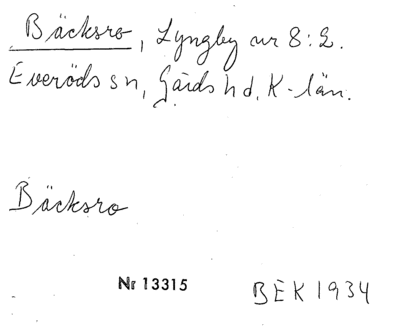 Bäcksro, Lyngby nr 8:2.
Everöds sn, Gärds hd, K-län.
Bäcksro
Nr 13315 BEK 1934